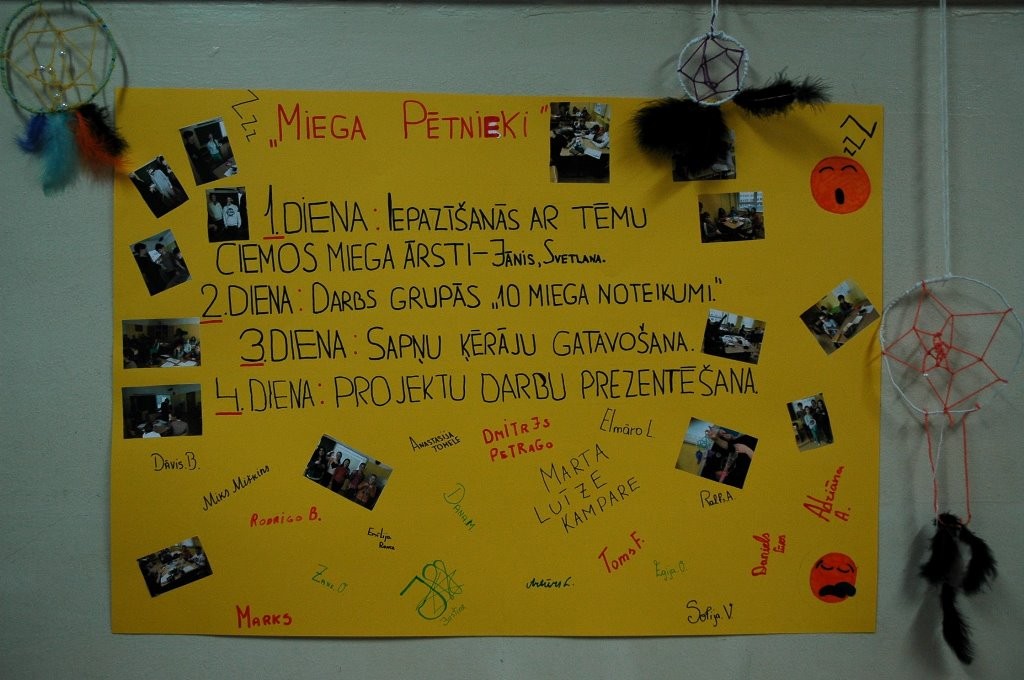 zzz
„MIEGA PĒTNIEKI"
zzz
1.DIENA: IEPAZĪŠANĀS AR TĒMU
CIEMOS MIEGA ĀRSTI-JĀNIS, SVETLANA.
2.DIENA: DARBS GRUPĀS „10 MIEGA NOTEIKUMI."
3.DIENA: SAPŅU ĶĒRĀJU GATAVOŠANA.
4.DIENA: PROJEKTU DARBU PREZENTĒŠANA.
Elmāro L
DMITRJS
PETRAGO
ANASTASIJA
TOMELE
MARTA
LUĪZE
KAMPARE
DĀVIS.B.
Miks
RODRIGO B.
Dana M
Ralfs.A
Adriāna
A.
Emilija
Toms F.
Daniels
Zane O.
Egija O.
Artūrs L.
Justīne
MARKS
Sofija.V.